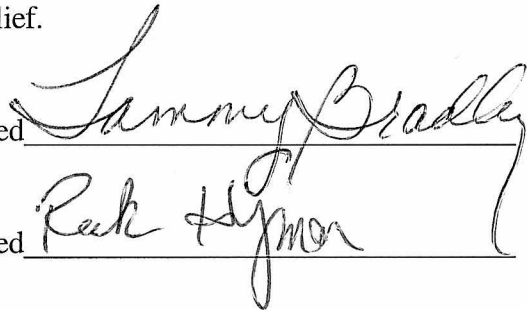 lief.
ed Tammy Bradley
ed Rick Hyman